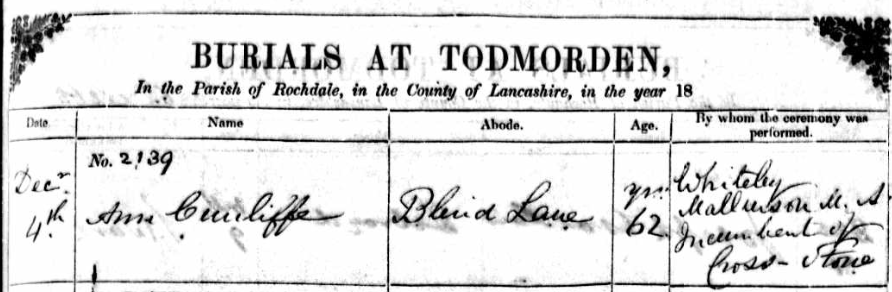 BURIALS AT TODMORDEN,
In the Parish of Rochdale, in the County of Lancashire, in the year 18
Date. Name Abode. Age. By whom the ceremony was performed.
No. 2139
Decr. 4th Ann Cunliffe Blind Lane yrs 62 Whiteley Mallinson M. A Incumbent of Cross-Stone